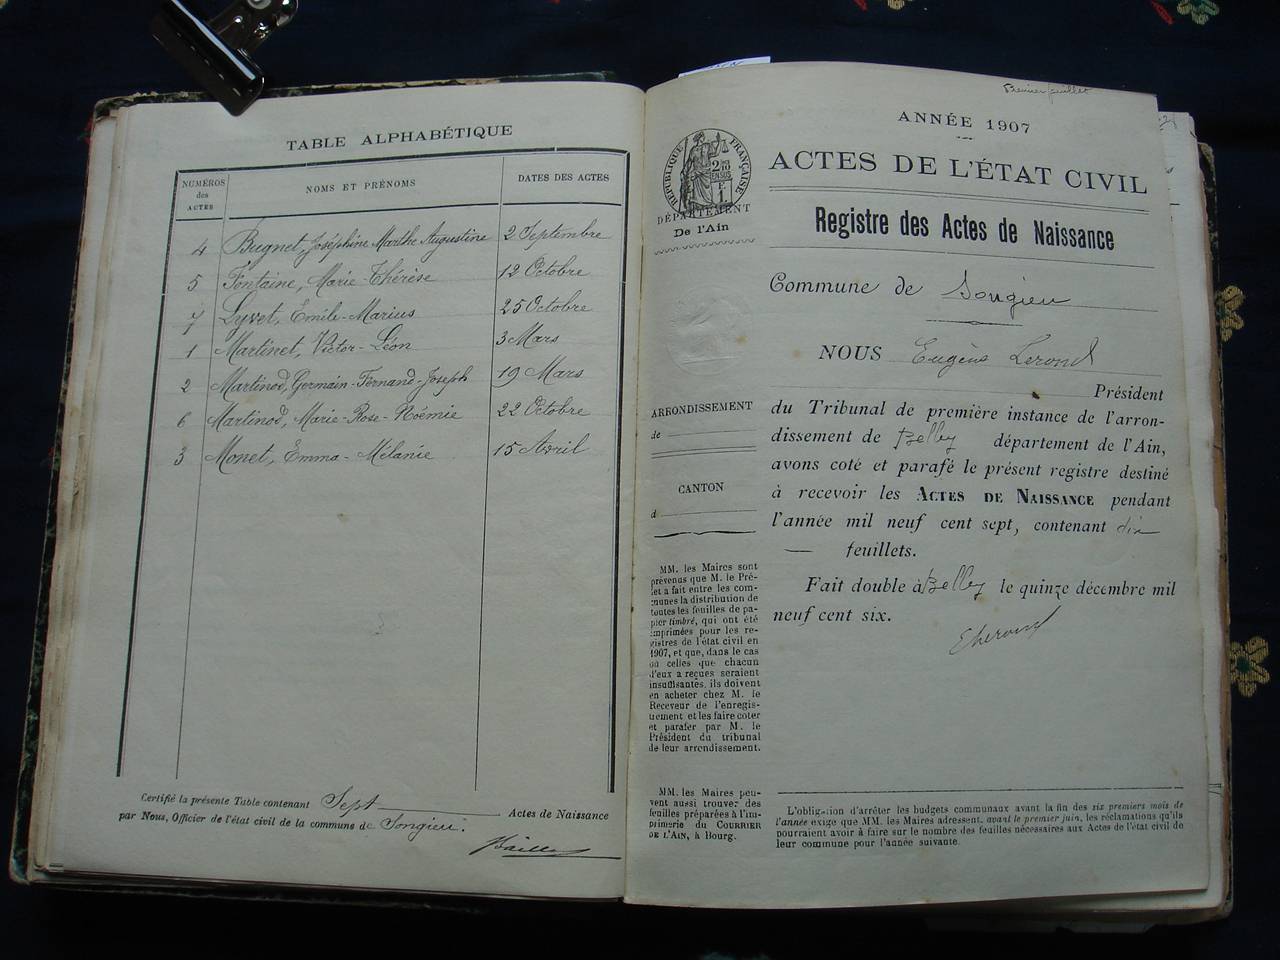 TABLE ALPHABÉTIQUE
NUMÉROS des ACTES NOMS ET PRÉNOMS DATES DES ACTES
4 Bugnet, Joséphine Marthe Augustine 2 Septembre
5 Fontaine, Marie-Thérèse 12 Octobre
7 Lyvet, Emile-Marius 25 Octobre
1 Martinet, Victor-Léon 3 Mars
2 Martinod, Germain-Fernand-Joseph 19 Mars
6 Martinod, Marie-Rose-Noémie 22 Octobre
3 Monet, Emma-Mélanie 15 Avril
Certifié la présente Table contenant Sept Actes de Naissance
par Nous, Officier de l'état civil de la commune de Songieu.
Premier feuillet
ANNÉE 1907
ACTES DE L'ÉTAT CIVIL
Registre des Actes de Naissance
RÉPUBLIQUE FRANÇAISE
DÉPARTEMENT
De l'Ain
Commune de Songieu
NOUS Eugène Lerond
Président
du Tribunal de première instance de l'arron-
dissement de Belley département de l'Ain,
avons coté et parafé le présent registre destiné
à recevoir les ACTES DE NAISSANCE pendant
l'année mil neuf cent sept, contenant dix
— feuillets.
Fait double à Belley le quinze décembre mil
neuf cent six.
ARRONDISSEMENT
de
CANTON
d
MM. les Maires sont
prévenus que M. le Pré-
fet a fait entre les com-
munes la distribution de
toutes les feuilles de pa-
pier timbré, qui ont été
imprimées pour les re-
gistres de l'état civil en
1907, et que, dans le cas
où celles que chacun
d'eux a reçues seraient
insuffisantes, ils doivent
en acheter chez M. le
Receveur de l'enregis-
trement et les faire coter
et parafer par M. le
Président du tribunal
de leur arrondissement.
MM. les Maires peu-
vent aussi trouver des
feuilles préparées à l'im-
primerie du COURRIER
DE L'AIN, à Bourg.
L'obligation d'arrêter les budgets communaux avant la fin des six premiers mois de
l'année exige que MM. les Maires adressent, avant le premier juin, les réclamations qu'ils
pourraient avoir à faire sur le nombre des feuilles nécessaires aux Actes de l'état civil de
leur commune pour l'année suivante.